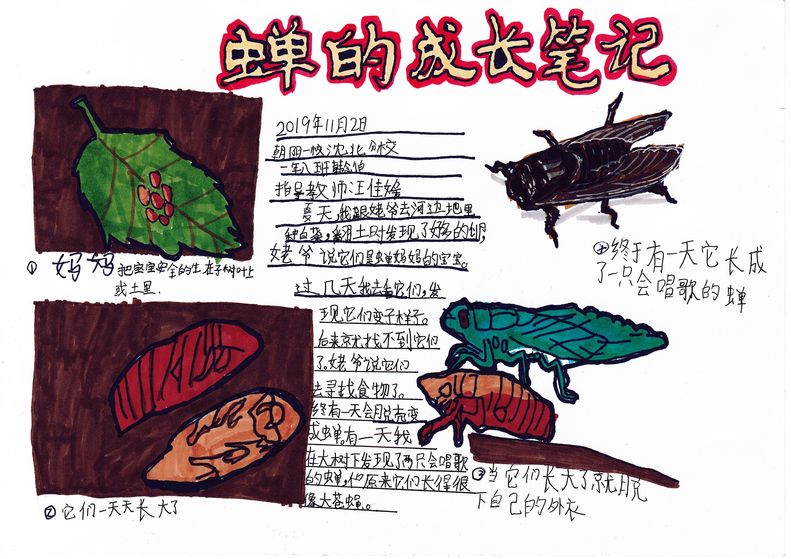 蝉的成长笔记
2019年11月2日
朝阳一校沈北分校
一年八班
指导教师汪佳
夏天,我跟姥爷去河边地里
种白菜,翻土时发现了好多的卵,
姥爷说它们是蝉妈妈的宝宝。
过几天我去看它们,发
现它们变了样子。
后来就找不到它们
了。姥爷说它们
去寻找食物了。
终有一天会脱壳变
成蝉。有一天我
在大树下发现了两只会唱歌
的蝉,原来它们长得很
像大苍蝇。
① 妈妈把宝宝安全的生在树叶上
或土里.
② 它们一天天长大了
③ 当它们长大了就脱
下自己的外衣
④ 终于有一天它长成
了一只会唱歌的蝉